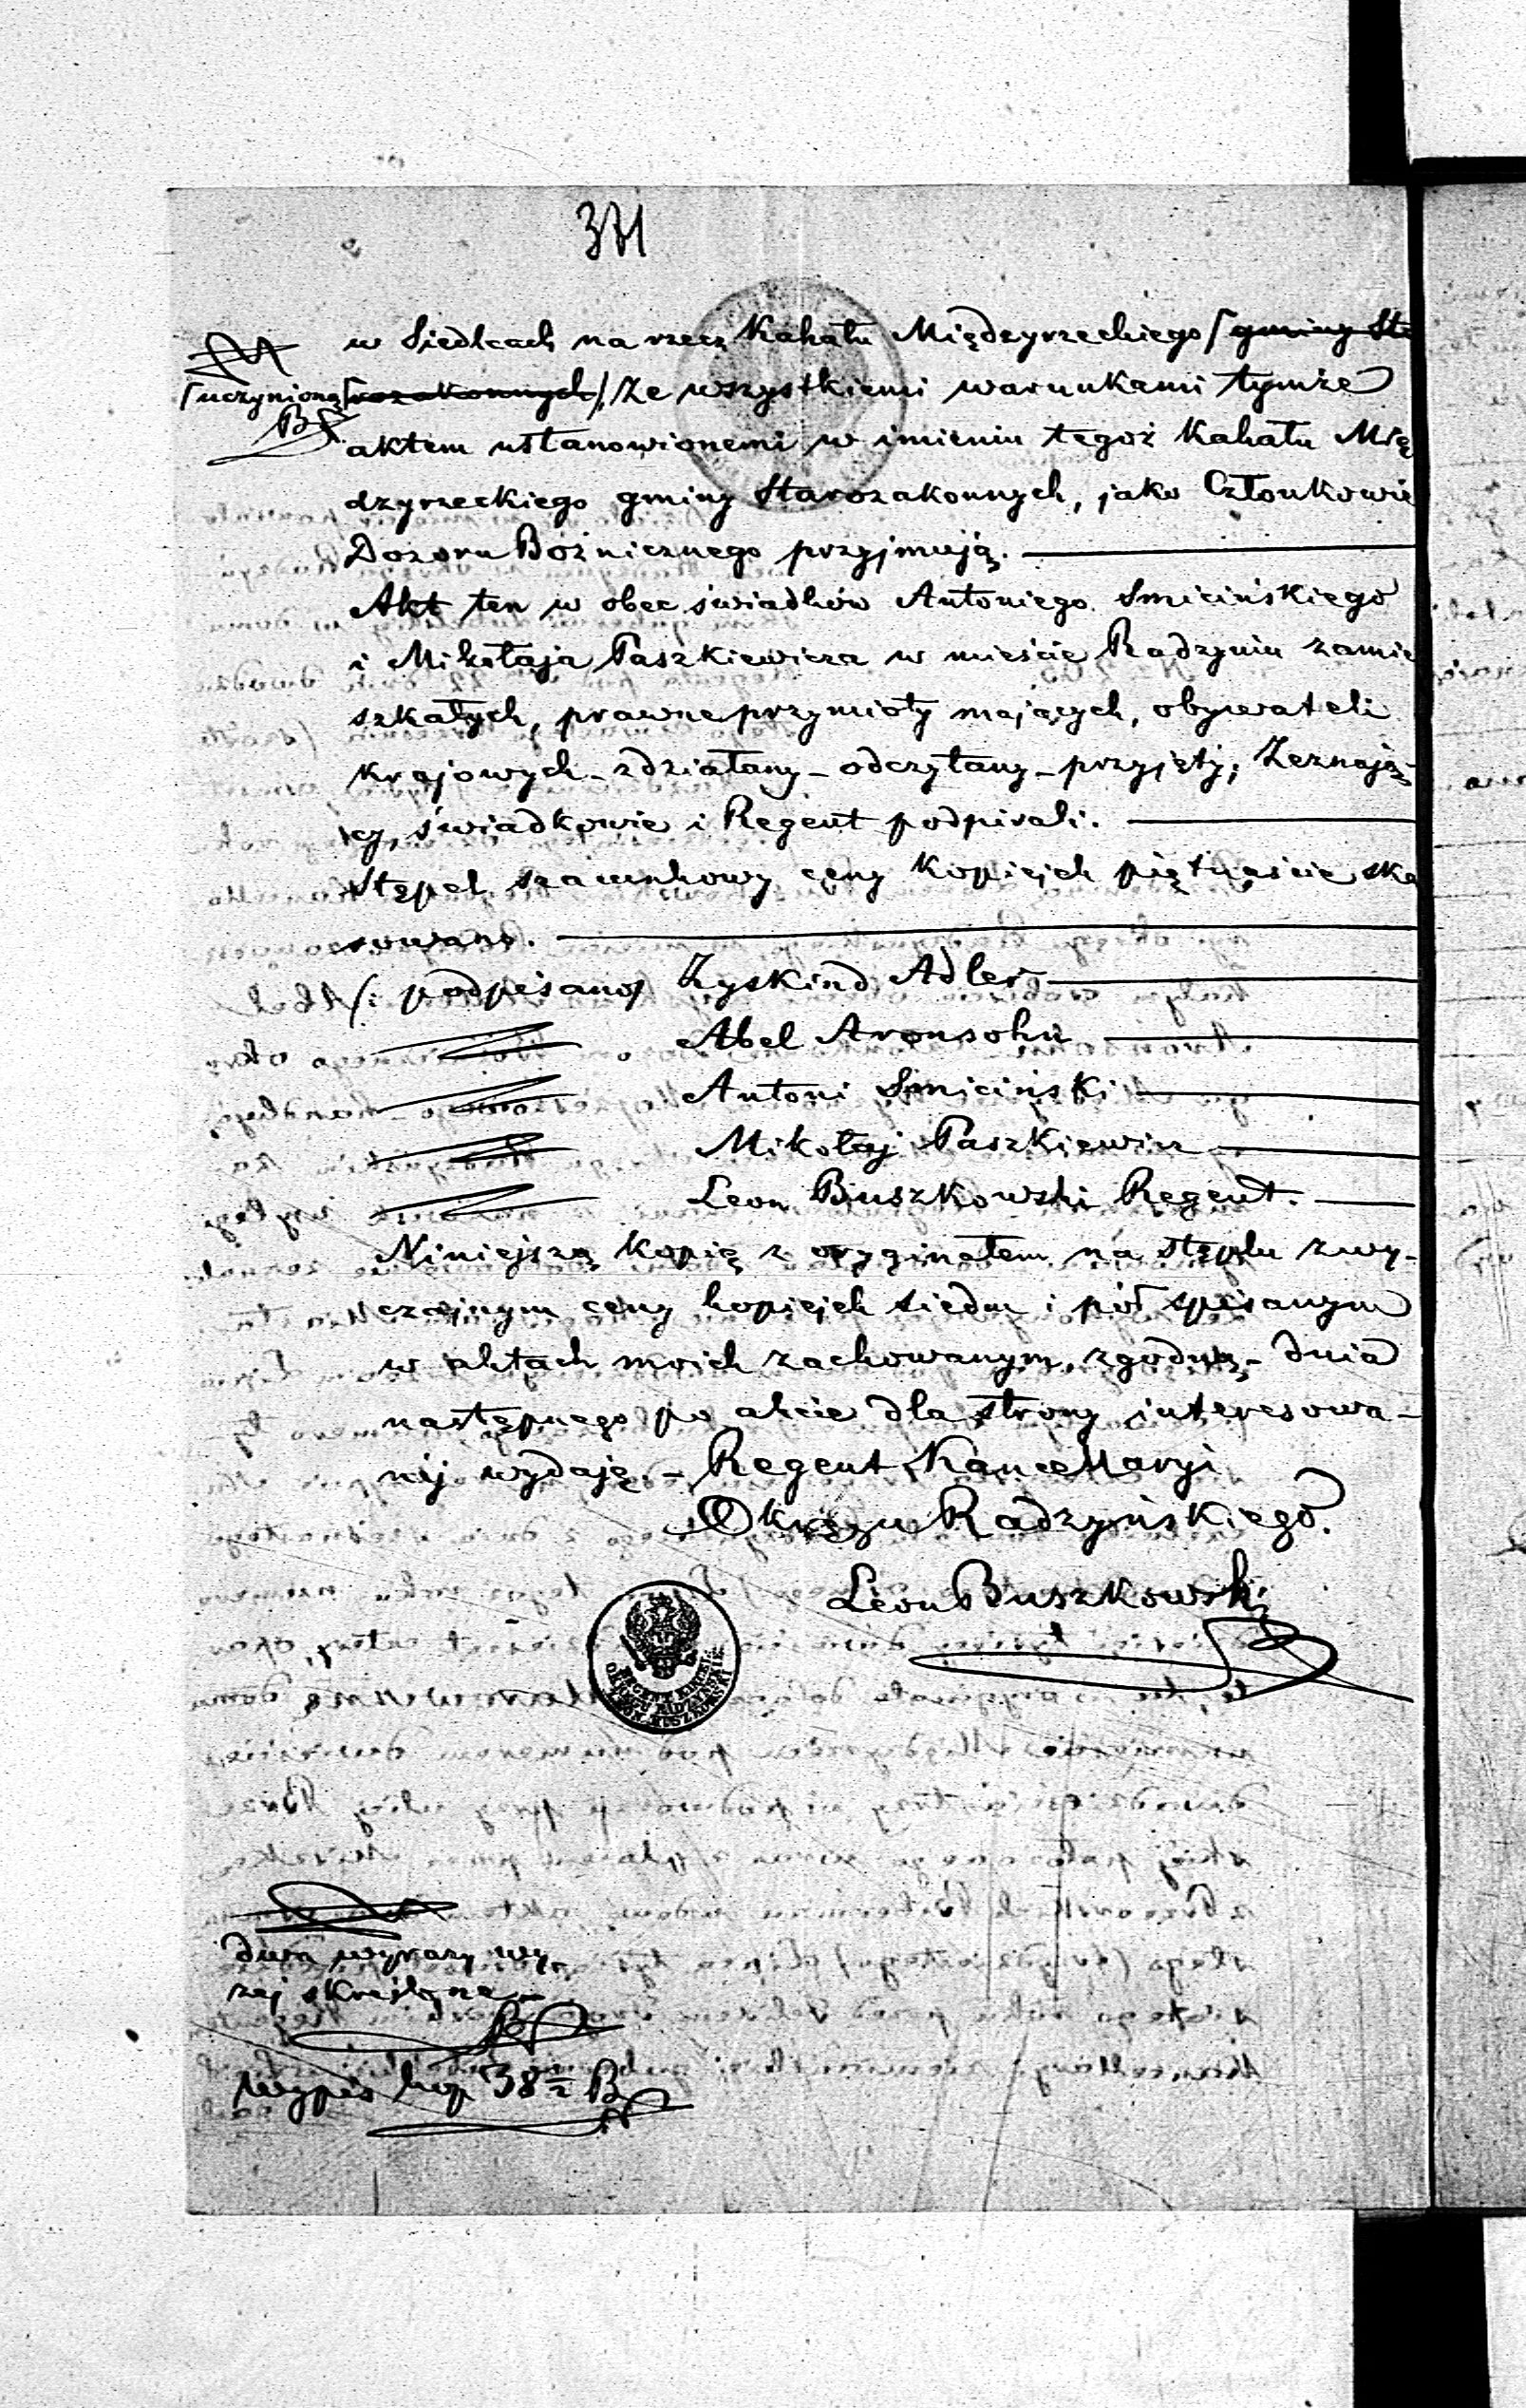 371
w Siedlcach na rzecz Kahału Międzyrzeckiego [gminy Sta
[uczynioną [rozakonnych/, ze wszystkiemi warunkami tymże
B
aktem ustanowionemi w imieniu tegoż Kahału Mię
dzyrzeckiego gminy Starozakonnych, jako Członkowie
Dozoru Bóżnicznego przyjmują.
Akt ten w obec świadków Antoniego Smicińskiego
i Mikołaja Paszkiewicza w mieście Radzyniu zamie
szkałych, prawne przymioty mających, obywateli
krajowych – zdziałany – odczytany – przyjęty; Zeznają-
cy, świadkowie i Regent podpisali.
Stępel szacunkowy ceny kopiejek piętnaście ska
sowano.
(: podpisano) Zyskind Adler
Abel Aronsohn
Antoni Smiciński
Mikołaj Paszkiewicz
Leon Buszkowski Regent.
Niniejszą kopię z oryginałem na stęplu zwy-
czajnym ceny kopiejek siedm i pół spisanym
w aktach moich zachowanym, zgodną – dnia
następnego po akcie dla strony interesowa-
nej wydaję. – Regent Kancellaryi
Okręgu Radzyńskiego.
Leon Buszkowski
REGENT KANCEL.
OKRĘGU RADZYŃSKIE.
LEON BUSZKOWSKI
dwa wyrazy wy
żej skreślone –
B
Wypis kop 38½ B